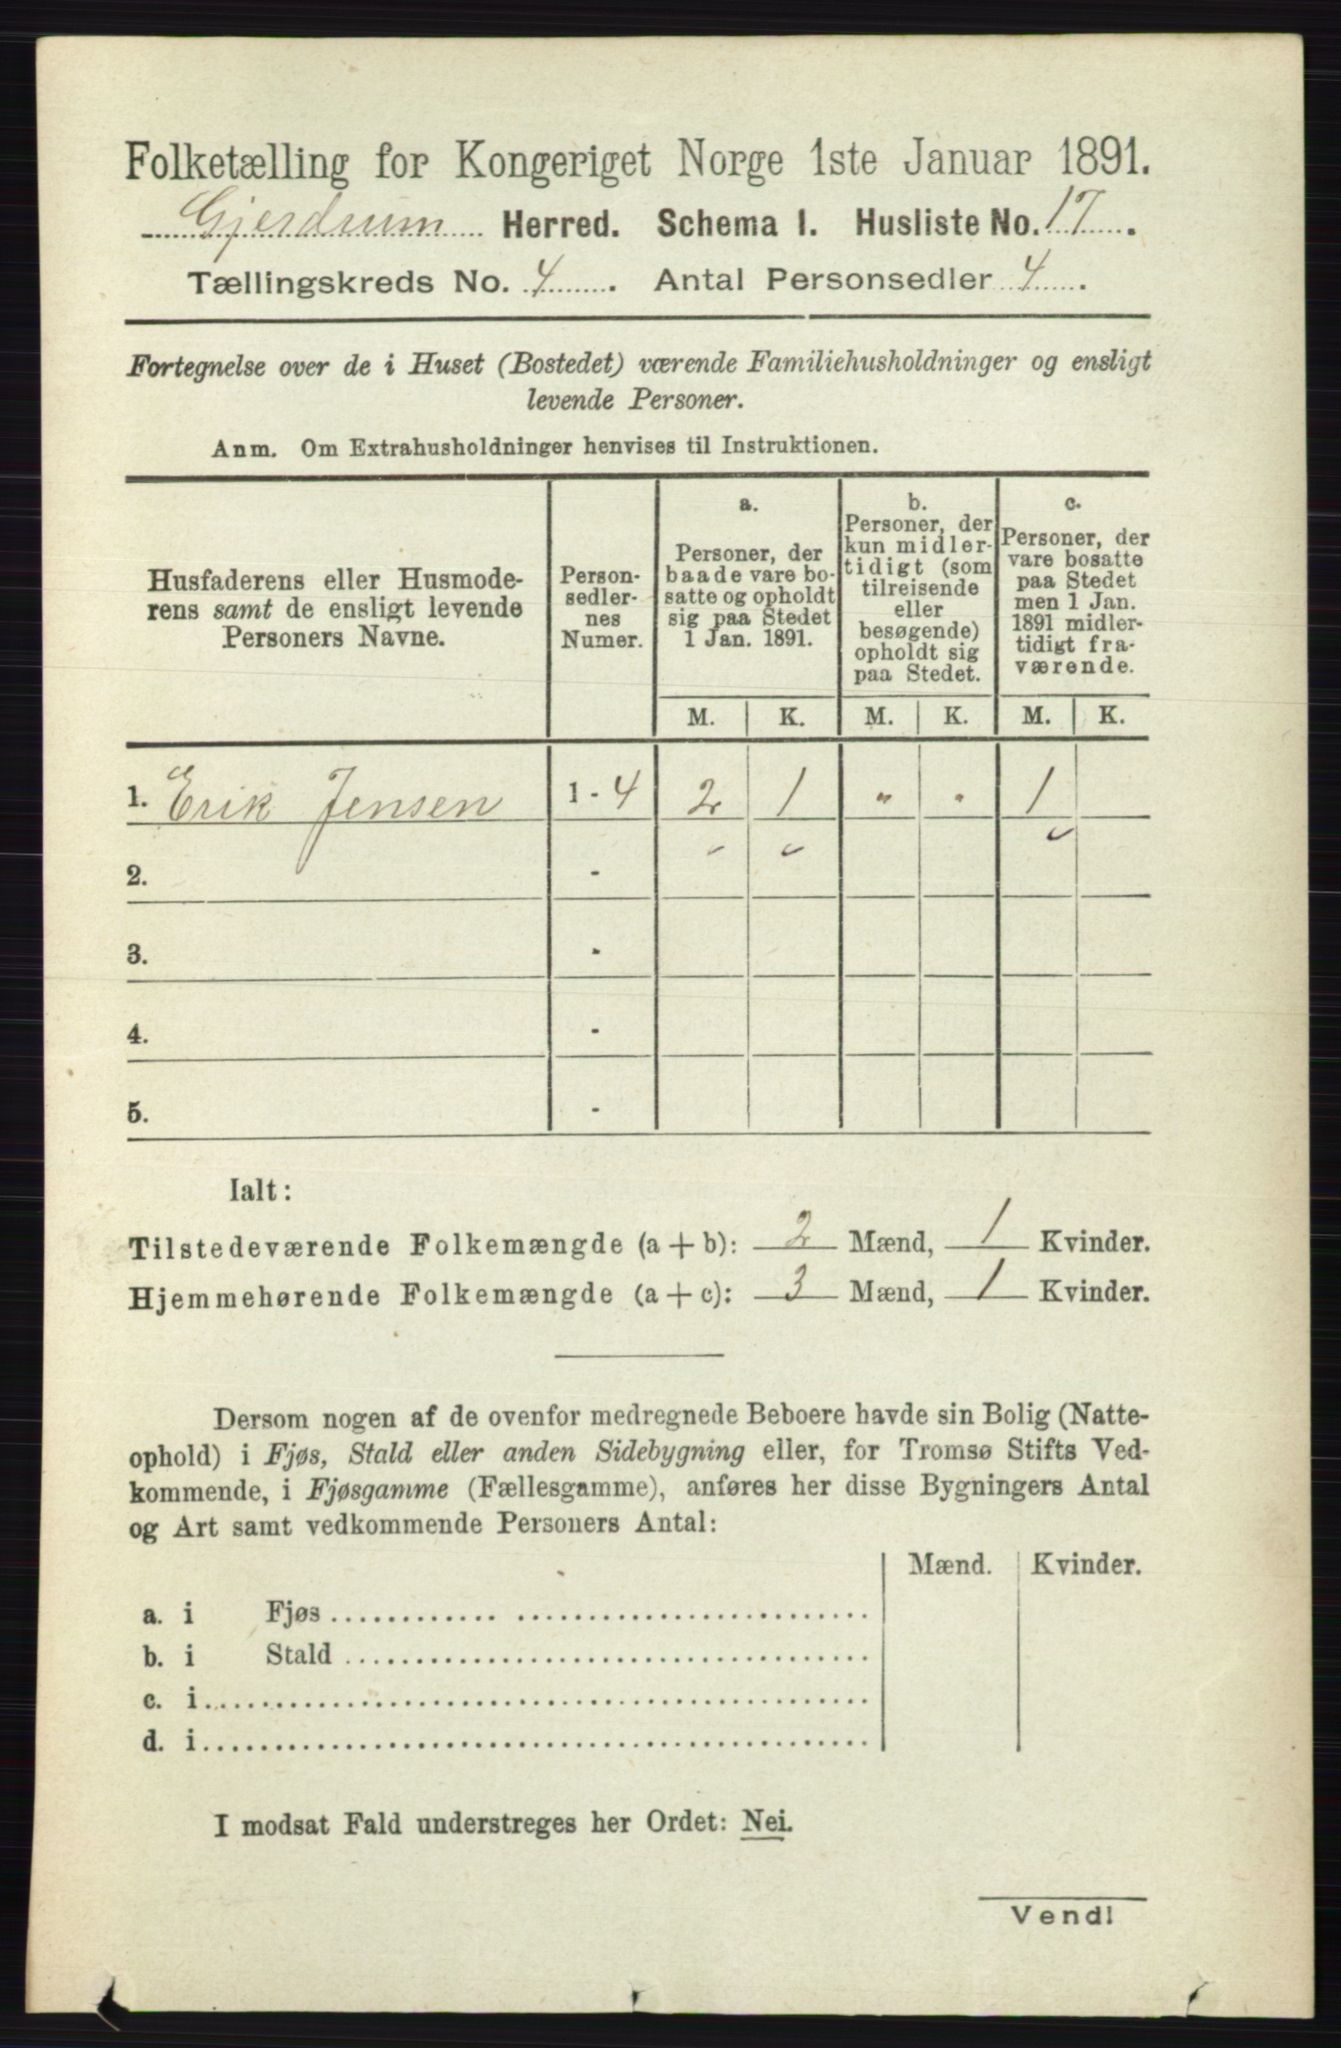 Folketælling for Kongeriget Norge 1ste Januar 1891.
Gjerdrum Herred. Schema I. Husliste No. 17.
Tællingskreds No. 4. Antal Personsedler 4.
Fortegnelse over de i Huset (Bostedet) værende Familiehusholdninger og ensligt
levende Personer.
Anm. Om Extrahusholdninger henvises til Instruktionen.
Husfaderens eller Husmode-
rens samt de ensligt levende
Personers Navne.
Person-
sedler-
nes
Numer.
a.
Personer, der
baade vare bo-
satte og opholdt
sig paa Stedet
1 Jan. 1891.
b.
Personer, der
kun midler-
tidigt (som
tilreisende
eller
besøgende)
opholdt sig
paa Stedet.
c.
Personer, der
vare bosatte
paa Stedet
men 1 Jan.
1891 midler-
tidigt fra-
værende.
M. K. M. K. M. K.
1. Erik Jensen 1 - 4 2 1 " " 1
2. -
3. -
4. -
5. -
Ialt:
Tilstedeværende Folkemængde (a + b): 2 Mænd, 1 Kvinder.
Hjemmehørende Folkemængde (a + c): 3 Mænd, 1 Kvinder.
Dersom nogen af de ovenfor medregnede Beboere havde sin Bolig (Natte-
ophold) i Fjøs, Stald eller anden Sidebygning eller, for Tromsø Stifts Ved-
kommende, i Fjøsgamme (Fællesgamme), anføres her disse Bygningers Antal
og Art samt vedkommende Personers Antal:
Mænd. Kvinder.
a. i Fjøs
b. i Stald
c. i
d. i
I modsat Fald understreges her Ordet: Nei.
Vend!